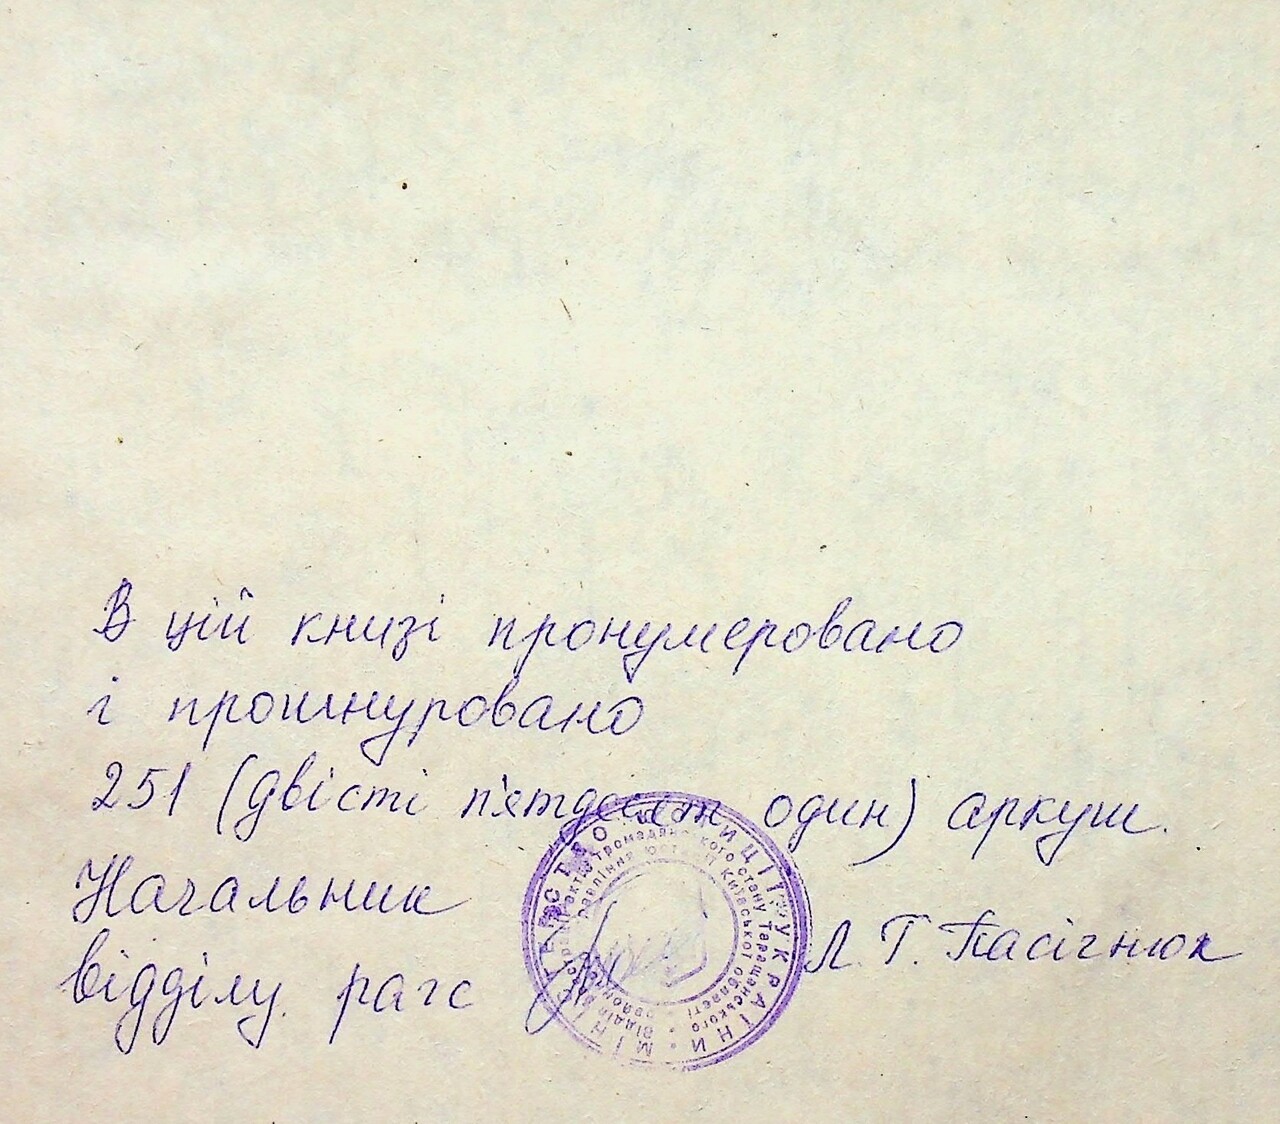 В цій книзі пронумеровано
і прошнуровано
251 (двісті п'ятдесят один) аркуш.
Начальник
відділу рагс Л. Г. Пасігнюк
МІНІСТЕРСТВО ЮСТИЦІЇ УКРАЇНИ
Відділ реєстрації актів громадянського стану Таращанського
районного управління юстиції Київської області